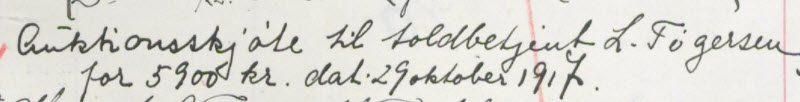 Auktionsskjøte til toldbetjent L. Tøgersen
for 5900 kr. dat. 29 oktober 1917.